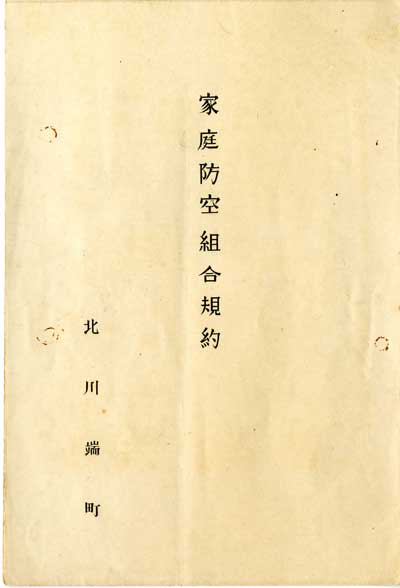 家庭防空組合規約
北川端町